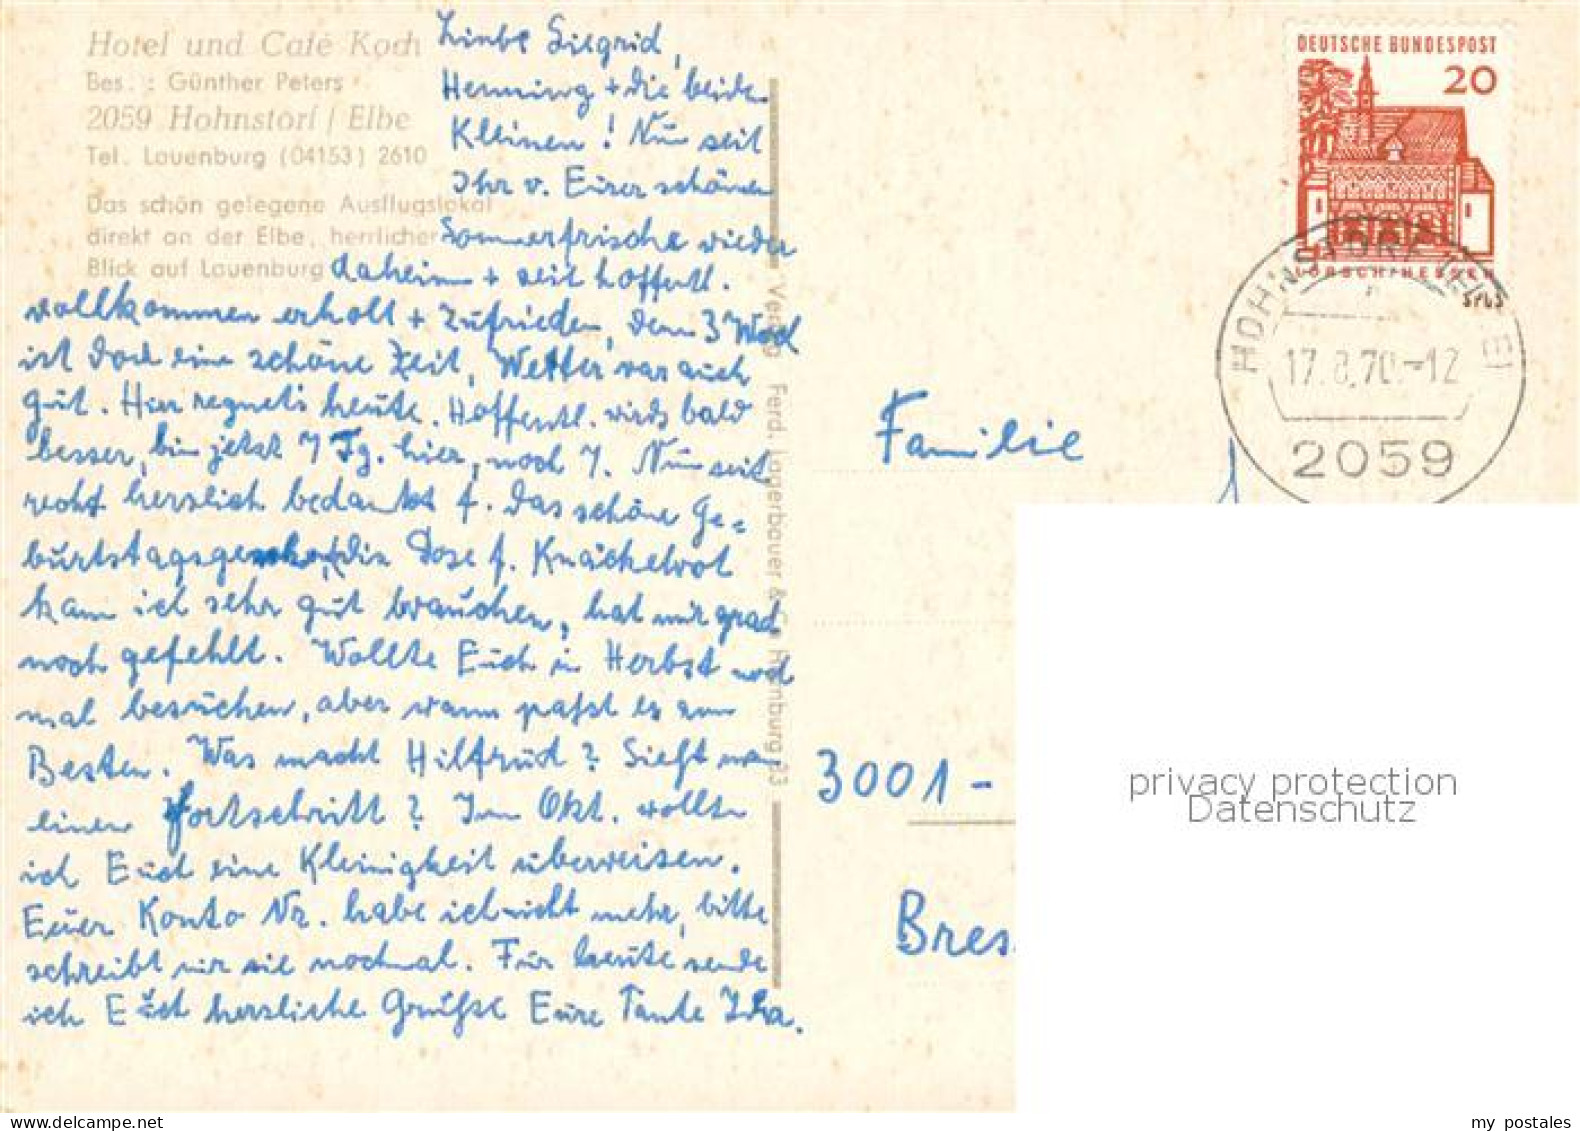 Hotel und Café Koch
Bes. : Günther Peters
2059 Hohnstorf / Elbe
Tel. Lauenburg (04153) 2610
Das schön gelegene Ausflugslokal
direkt an der Elbe, herrlicher
Blick auf Lauenburg
Liebe Siegrid,
Henning + die beiden
Kleinen! Nun seit
Ihr v. Eurer schönen
Sommerfrische wieder
daheim + seit hoffentl.
vollkommen erholt + zufrieden, denn 3 Woch
ist doch eine schöne Zeit, Wetter war auch
gut. Hier regnets heute. Hoffentl. wirds bald
besser, bin jetzt 7 Tg. hier, noch 7. Nun seit
recht herzlich bedankt f. das schöne Ge=
burtstagsgeschenk, die Dose f. Knäckebrot
kann ich sehr gut brauchen, hat mir grad
noch gefehlt. Wollte Euch im Herbst noch
mal besuchen, aber wann paßt es am
Besten. Was macht Hiltrud? Sieht man
einen Fortschritt? Im Okt. wollte
ich Euch eine Kleinigkeit überweisen.
Euer Konto Nr. habe ich nicht mehr, bitte
schreibt mir sie nochmal. Für heute sende
ich Euch herzliche Grüße Eure Tante Ida.
Verlag Ferd. Lagerbauer & Co Hamburg 33
DEUTSCHE BUNDESPOST
20
LORSCH/HESSEN
HOHNSTORF
17.8.70.-12
2059
Familie
3001-
Bres
privacy protection
Datenschutz
my postales